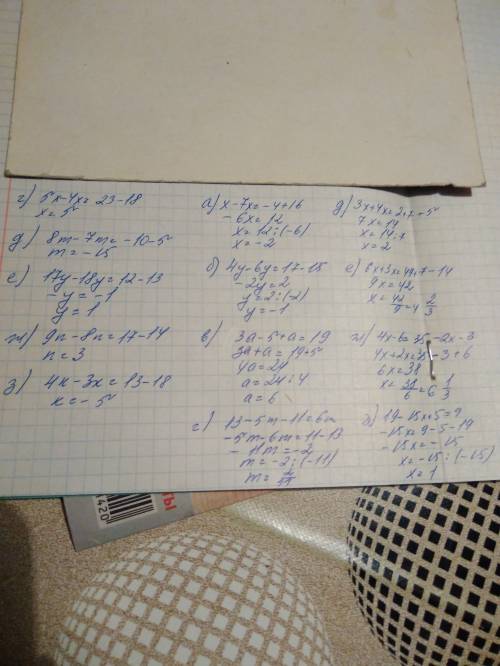 г) 5x-4x=23-18
x=5
д) 8m-7m=-10-5
m=-15
е) 17y-18y=12-13
-y=-1
y=1
ж) 9n-8n=17-14
n=3
з) 4к-3к=13-18
к=-5
а) x-7x=-4+16
-6x=12
x=12:(-6)
x=-2
б) 4y-6y=17-15
-2y=2
y=2:(-2)
y=-1
в) 3a-5+a=19
3a+a=19+5
4a=24
a=24:4
a=6
г) 13-5m-11=6m
-5m-6m=11-13
-11m=-2
m=-2:(-11)
m=2/11
7x=14
x=14:7
x=2
9x=42
x=42/9=4 2/3
ж) 4x-6=35-2x-3
4x+2x=35-3+6
6x=38
x=38/6=6 1/3
з) 19-15x+5=9
-15x=9-5-19
-15x=-15
x=-15:(-15)
x=1
1420